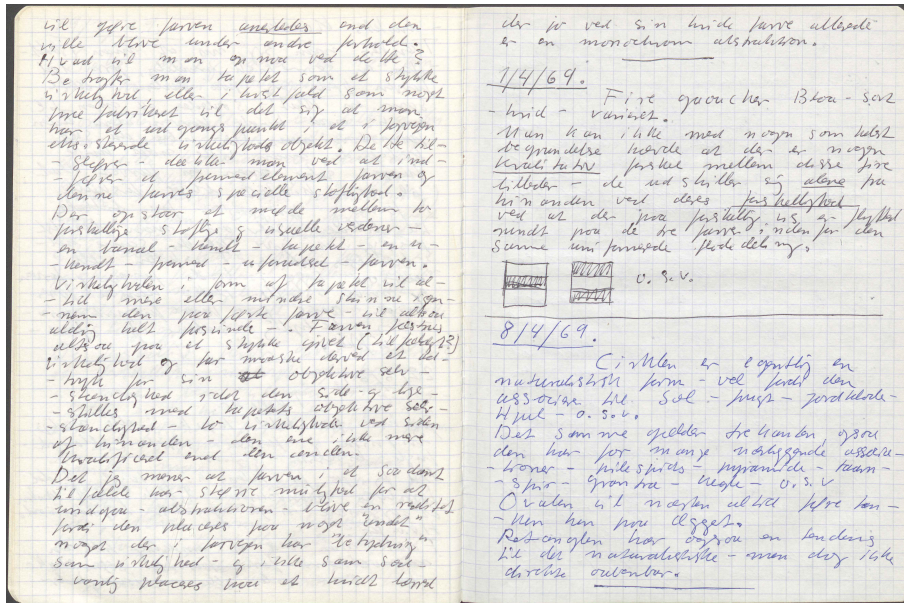 vil gøre farven anerledes end den
ville blive under andre forhold.
Hvad vil man opnaa ved dette?
Betragter man tapetet som et stykke
virkelighed eller i hvert fald som noget
præfabrikeret vil det sig at man
har et udgangspunkt i et i forvejen
eksisterende virkeligheds objekt. Dette til-
- fører - man ved at ind-
- føre et fremmed element farven og
denne farves specielle stoflighed.
Der opstaar et møde mellem to
forskellige stoflige og visuelle verdener -
en banal - kendt - tapetet - en u-
- kendt - fremmed - uforudset - farven.
Virkeligheden i form af tapetet vil al-
- tid mere eller mindre skinne igen-
- nem den paaførte farve - vil altsaa
aldrig helt forsvinde -. Farven fæstnes
altsaa paa et stykke givet (tilfældigt?)
virkelighed og faar maaske derved et ud-
- tryk for sin objektive selv-
- stændighed idet den side- og lige-
- stilles med tapetets objektive selv-
- stændighed - to virkeligheder ved siden
af hinanden - den ene ikke mere
kvalificeret end den anden.
Det jeg mener at farven i et saadant
tilfælde har større mulighed for at
undgaa - abstraktionen - blive en realitet
fordi den placeres paa noget "andet"
noget der i forvejen har "betydning"
som virkelighed - og ikke som sæd-
- vanlig placeres paa et hvidt lærred
der jo ved sin hvide farve allerede
er en monochrom abstraktion.
1/4/69.
Fire gouacher Blaa - sort
- hvid - varieret.
Man kan ikke med nogen som helst
begrundelse hævde at der er nogen
kvalitativ forskel mellem disse fire
billeder - de udskiller sig alene fra
hinanden ved deres forskellighed
ved at der paa forskellig vis er flyttet
rundt paa de tre farver inden for den
samme uniformerede fladedeling.
o.s.v.
8/4/69.
Cirklen er egentlig en
naturalistisk form - vel fordi den
associerer til Sol - frugt - jordklode -
Hjul - o.s.v.
Det samme gælder trekanten, ogsaa
den har for mange nærliggende associa-
- tioner - pilespids - pyramide - taarn -
- spir - grantræ - kegle - o.s.v
Ovalen vil næsten altid føre tan-
- ken hen paa Ægget.
Rektanglen har ogsaa en tendens
til det naturalistiske - men dog ikke
direkte aabenbar.